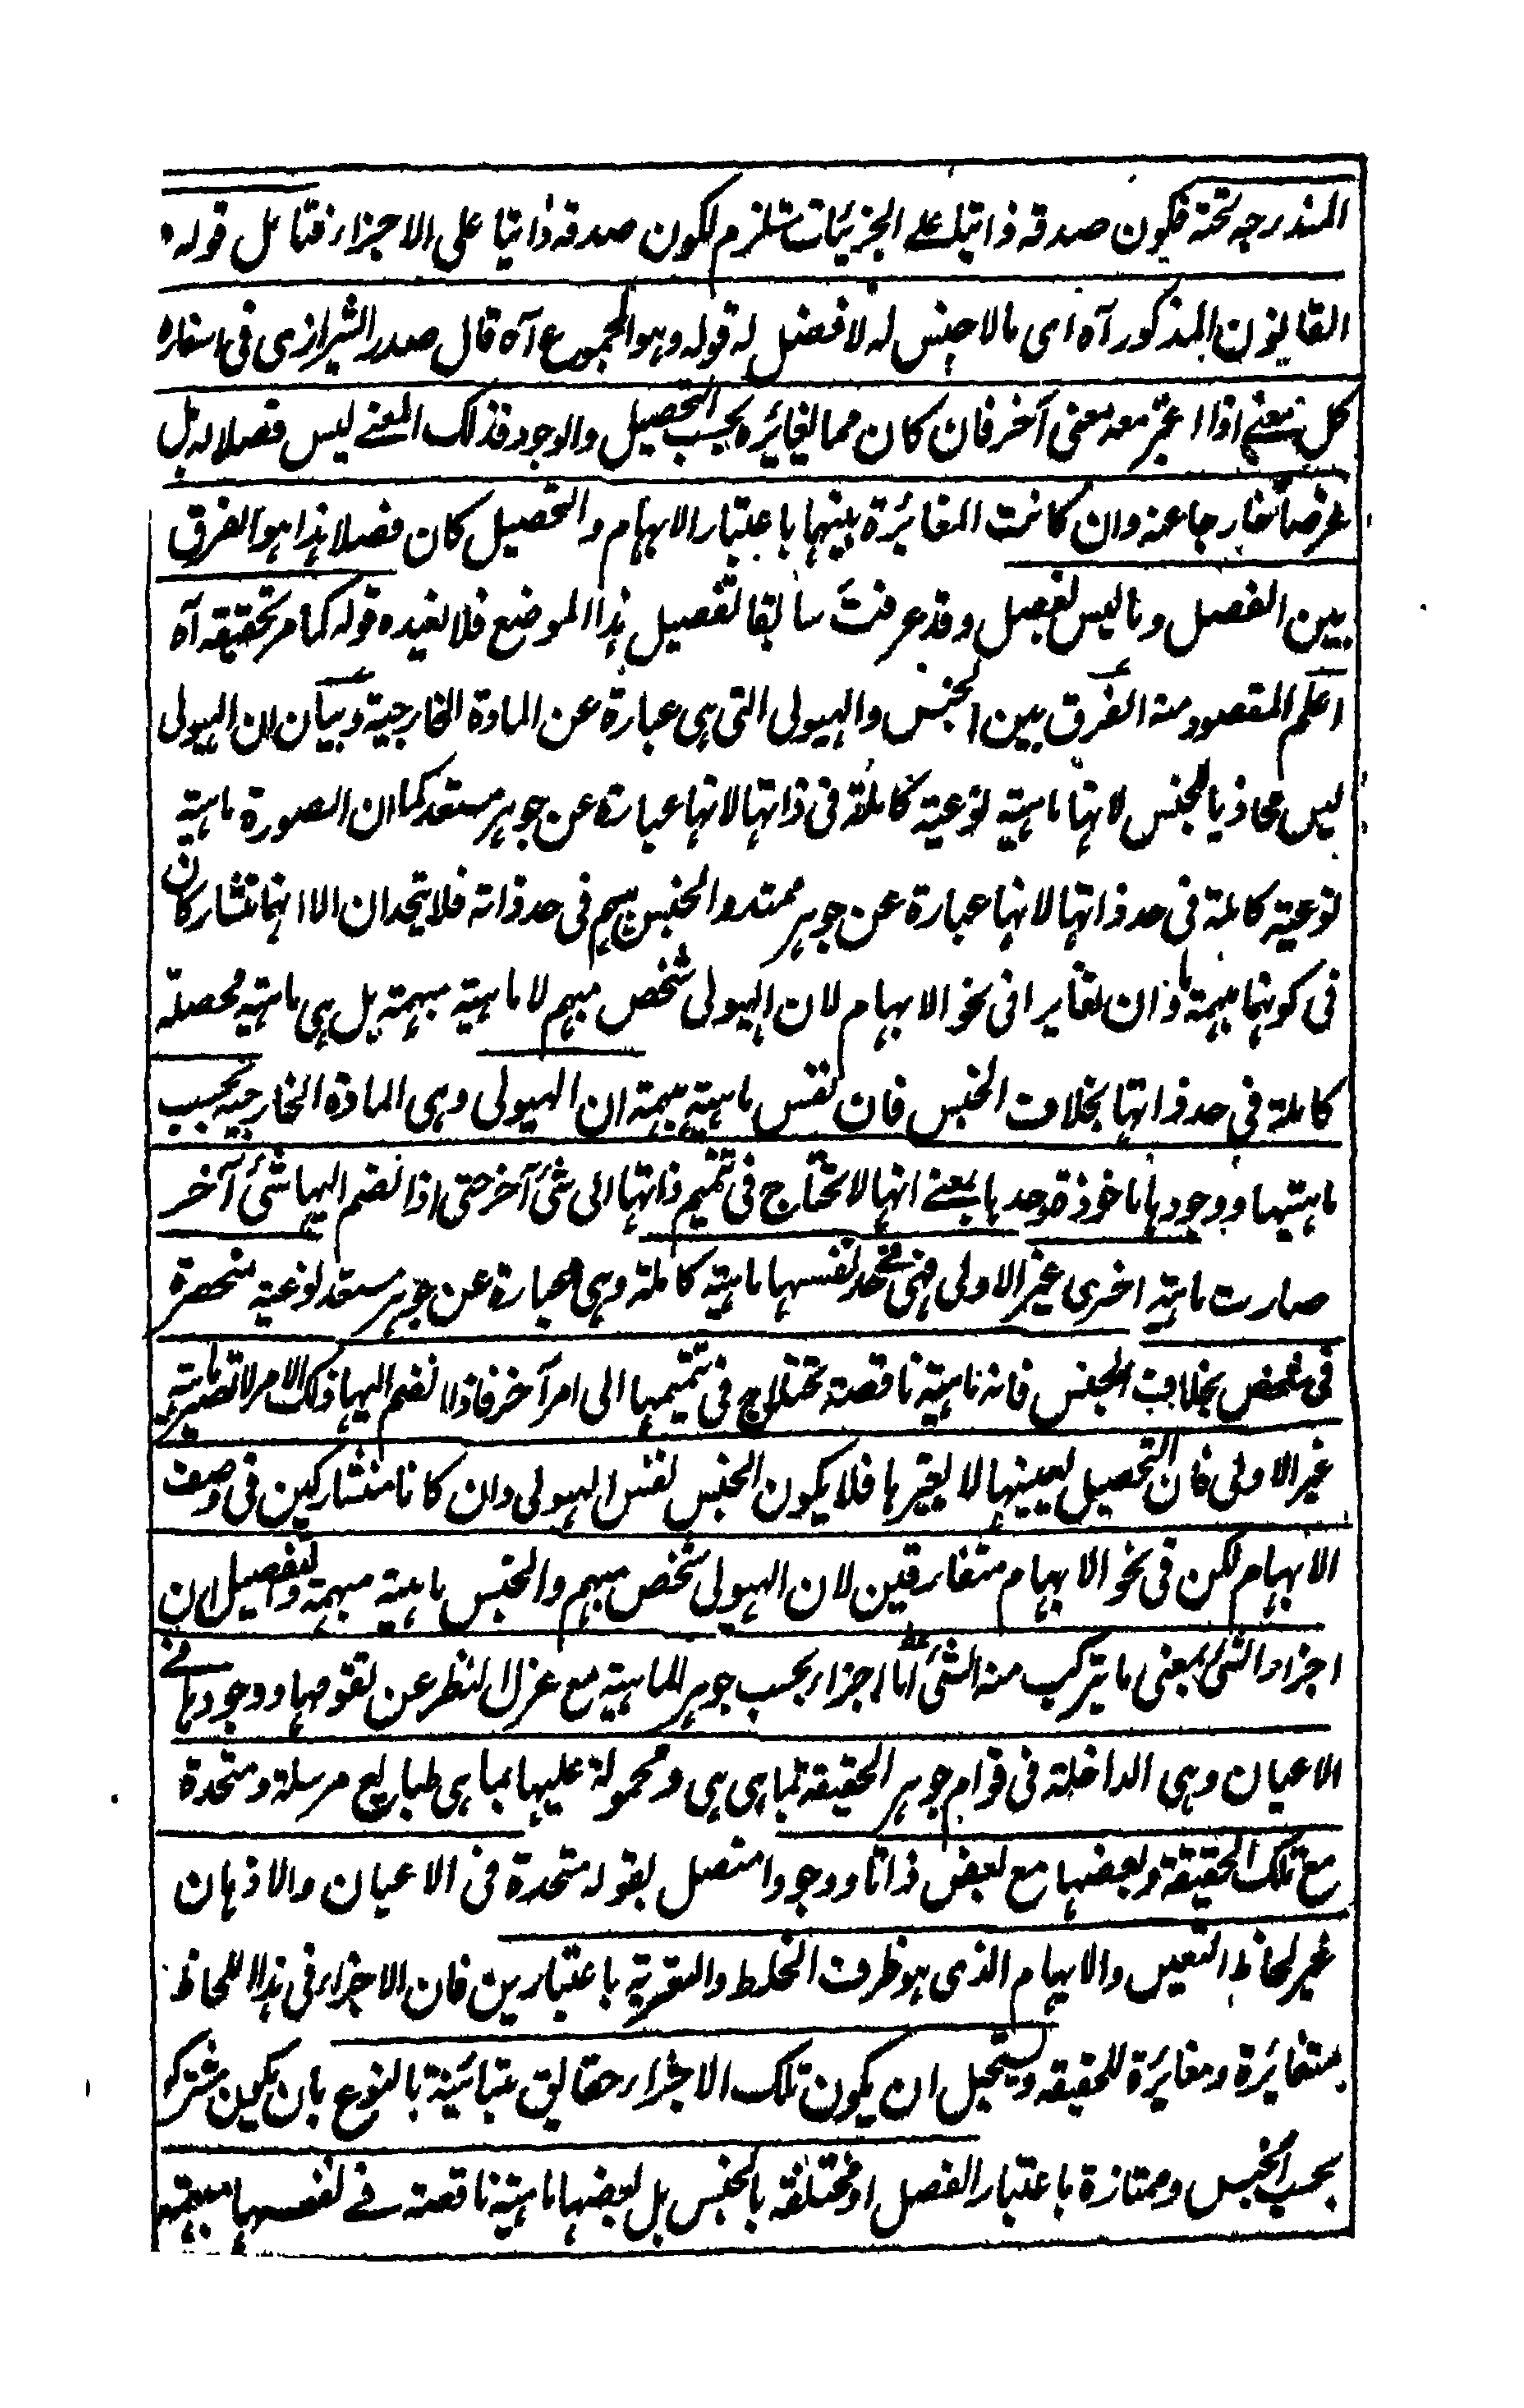 المندرجة تحته فكون صدقه ذاتيا على الجزئيات يستلزم لكون صدقه ذاتيا على الاجزاء فتامل قوله
القانون المذكور آه اى مالا جنس له لا فصل له قوله وهو المجموع آه قال صدر الشيرازى فى اسفاره
كل معنى اذا اعتبر معه معنى آخر فان كان مما يغائره بحسب التحصيل والوجود فذلك المعنے ليس فصلا له بل
عرضا خارجا عنه وان كانت المغائرة بينها باعتبار الابهام والتحصيل كان فصلا هذا هو الفرق
بين الفصل وما ليس بفصل وقد عرفت سابقا تفصيل هذا الموضع فلا نعيده قوله كما مر تحقيقه آه
اعلم المقصود منه الفرق بين الجنس والهيولى التى هى عبارة عن المادة الخارجية وبيان ان الهيولى
ليس محاذيا للجنس لانها ماهية نوعية كاملة فى ذاتها لانها عبارة عن جوهر مستعد كما ان الصورة ماهية
نوعية كاملة فى حد ذاتها لانها عبارة عن جوهر ممتد والجنس مبهم فى حد ذاته فلا يتحدان الا انهما تشاركان
فى كونهما مبهمة ما وان تغايرا فى نحو الابهام لان الهيولى شخص مبهم لا ماهية مبهمة بل هى ماهية محصلة
كاملة فى حد ذاتها بخلاف الجنس فان نفس ماهية مبهمة ان الهيولى وهى المادة الخارجية بحسب
ماهيتها ووجودها ماخوذة وحدها بمعنے انها لا تحتاج فى تتميم ذاتها الى شئ آخر حتى اذا انضم اليها شئ آخر
صارت ماهية اخرى غير الاولى فهى فے حد نفسها ماهية كاملة وهى عبارة عن جوهر مستعد نوعية منحصرة
فى شخص بخلاف الجنس فانه ماهية ناقصة تحتاج فى تتميمها الى امر آخر فاذا انضم اليها ذلك الامر لا تصير ماهية
غير الاولى فان التحصيل يعينها لا يغيرها فلا يكون الجنس نفس الهيولى وان كانا متشاركين فى وصف
الابهام لكن فى نحو الابهام متفارقين لان الهيولى شخص مبهم والجنس ماهية مبهمة وتفصيل ان
اجزاء الشئ بمعنى ما يتركب منه الشئ اما اجزاء بحسب جوهر الماهية مع عزل النظر عن تقومها ووجودها فے
الاعيان وهى الداخلة فى قوام جوهر الحقيقة بما هى هى ومحمولة عليها بما هى طبايع مرسلة ومتحدة
مع تلك الحقيقة وبعضها مع بعض ذاتا ووجودا متصل بقوله متحدة فى الاعيان والاذهان
غير لحاظ التعيين والابهام الذى هو ظرف الخلط والتعرية باعتبارين فان الاجزاء فى هذا اللحاظ
متغائرة ومغائرة للحقيقة ويستحيل ان يكون تلك الاجزاء حقائق متبائنة بالنوع بان يكون مشتركة
بحسب الجنس وممتازة باعتبار الفصل او مختلفة بالجنس بل بعضها ماهية ناقصة فے نفسها مبهمة